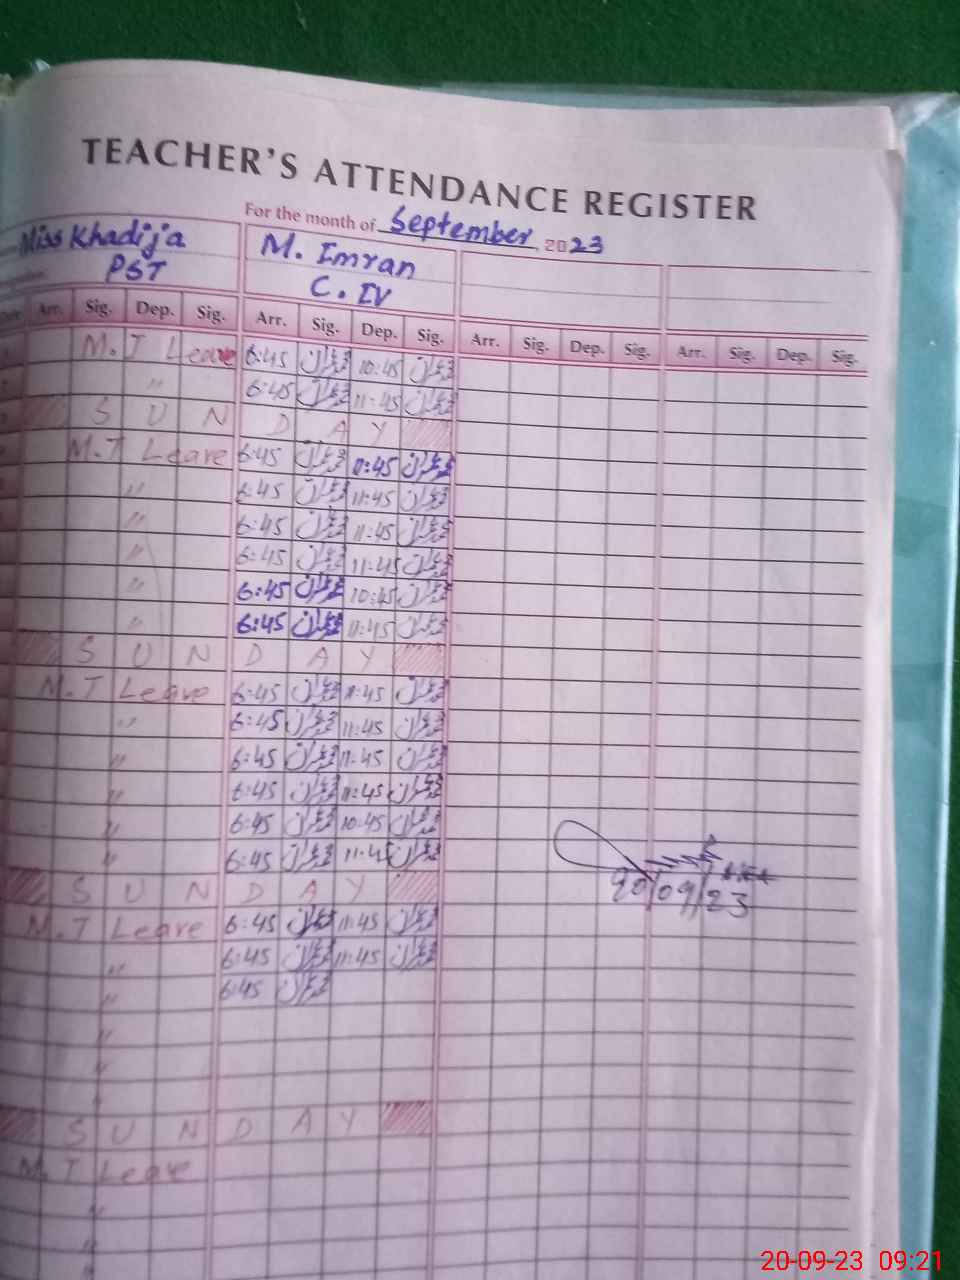 TEACHER'S ATTENDANCE REGISTER
For the month of September, 2023
Miss Khadija M. Imran
PST C. IV
Arr. Sig. Dep. Sig. Arr. Sig. Dep. Sig. Arr. Sig. Dep. Sig. Arr. Sig. Dep. Sig.
M.T Leave 6:45 عمران 10:45 عمران
" 6:45 عمران 11:45 عمران
S U N D A Y
M.T Leave 6:45 عمران 11:45 عمران
" 6:45 عمران 11:45 عمران
" 6:45 عمران 11:45 عمران
" 6:45 عمران 11:45 عمران
" 6:45 عمران 10:45 عمران
" 6:45 عمران 11:45 عمران
S U N D A Y
M.T Leave 6:45 عمران 11:45 عمران
" 6:45 عمران 11:45 عمران
" 6:45 عمران 11:45 عمران
" 6:45 عمران 11:45 عمران
" 6:45 عمران 10:45 عمران
" 6:45 عمران 11:45 عمران
S U N D A Y
20/09/23
M.T Leave 6:45 عمران 11:45 عمران
" 6:45 عمران 11:45 عمران
" 6:45 عمران
"
"
"
S U N D A Y
M.T Leave
"
"
20-09-23 09:21